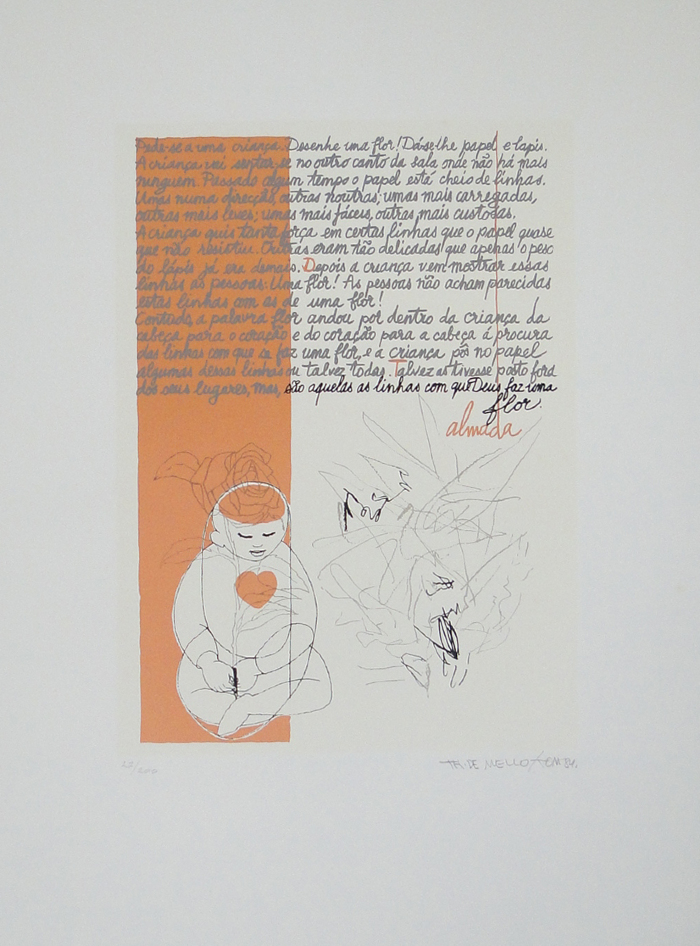 Pede-se a uma criança. Desenhe uma flor! Dá-se-lhe papel e lápis.
A criança vai sentar-se no outro canto da sala onde não há mais
ninguem. Passado algum tempo o papel está cheio de linhas.
Umas numa direcção, outras noutras; umas mais carregadas,
outras mais leves; umas mais fáceis, outras mais custosas.
A criança quis tanta força em certas linhas que o papel quase
que não resistiu. Outras eram tão delicadas que apenas o peso
do lápis já era demais. Depois a criança vem mostrar essas
linhas às pessoas: Uma flor! As pessoas não acham parecidas
estas linhas com as de uma flor!
Contudo, a palavra flor andou por dentro da criança da
cabeça para o coração e do coração para a cabeça à procura
das linhas com que se faz uma flor, e a criança pôs no papel
algumas dessas linhas ou talvez todas. Talvez as tivesse posto fora
dos seus lugares, mas, são aquelas as linhas com que Deus faz uma
flor.
almada
DE MELLO